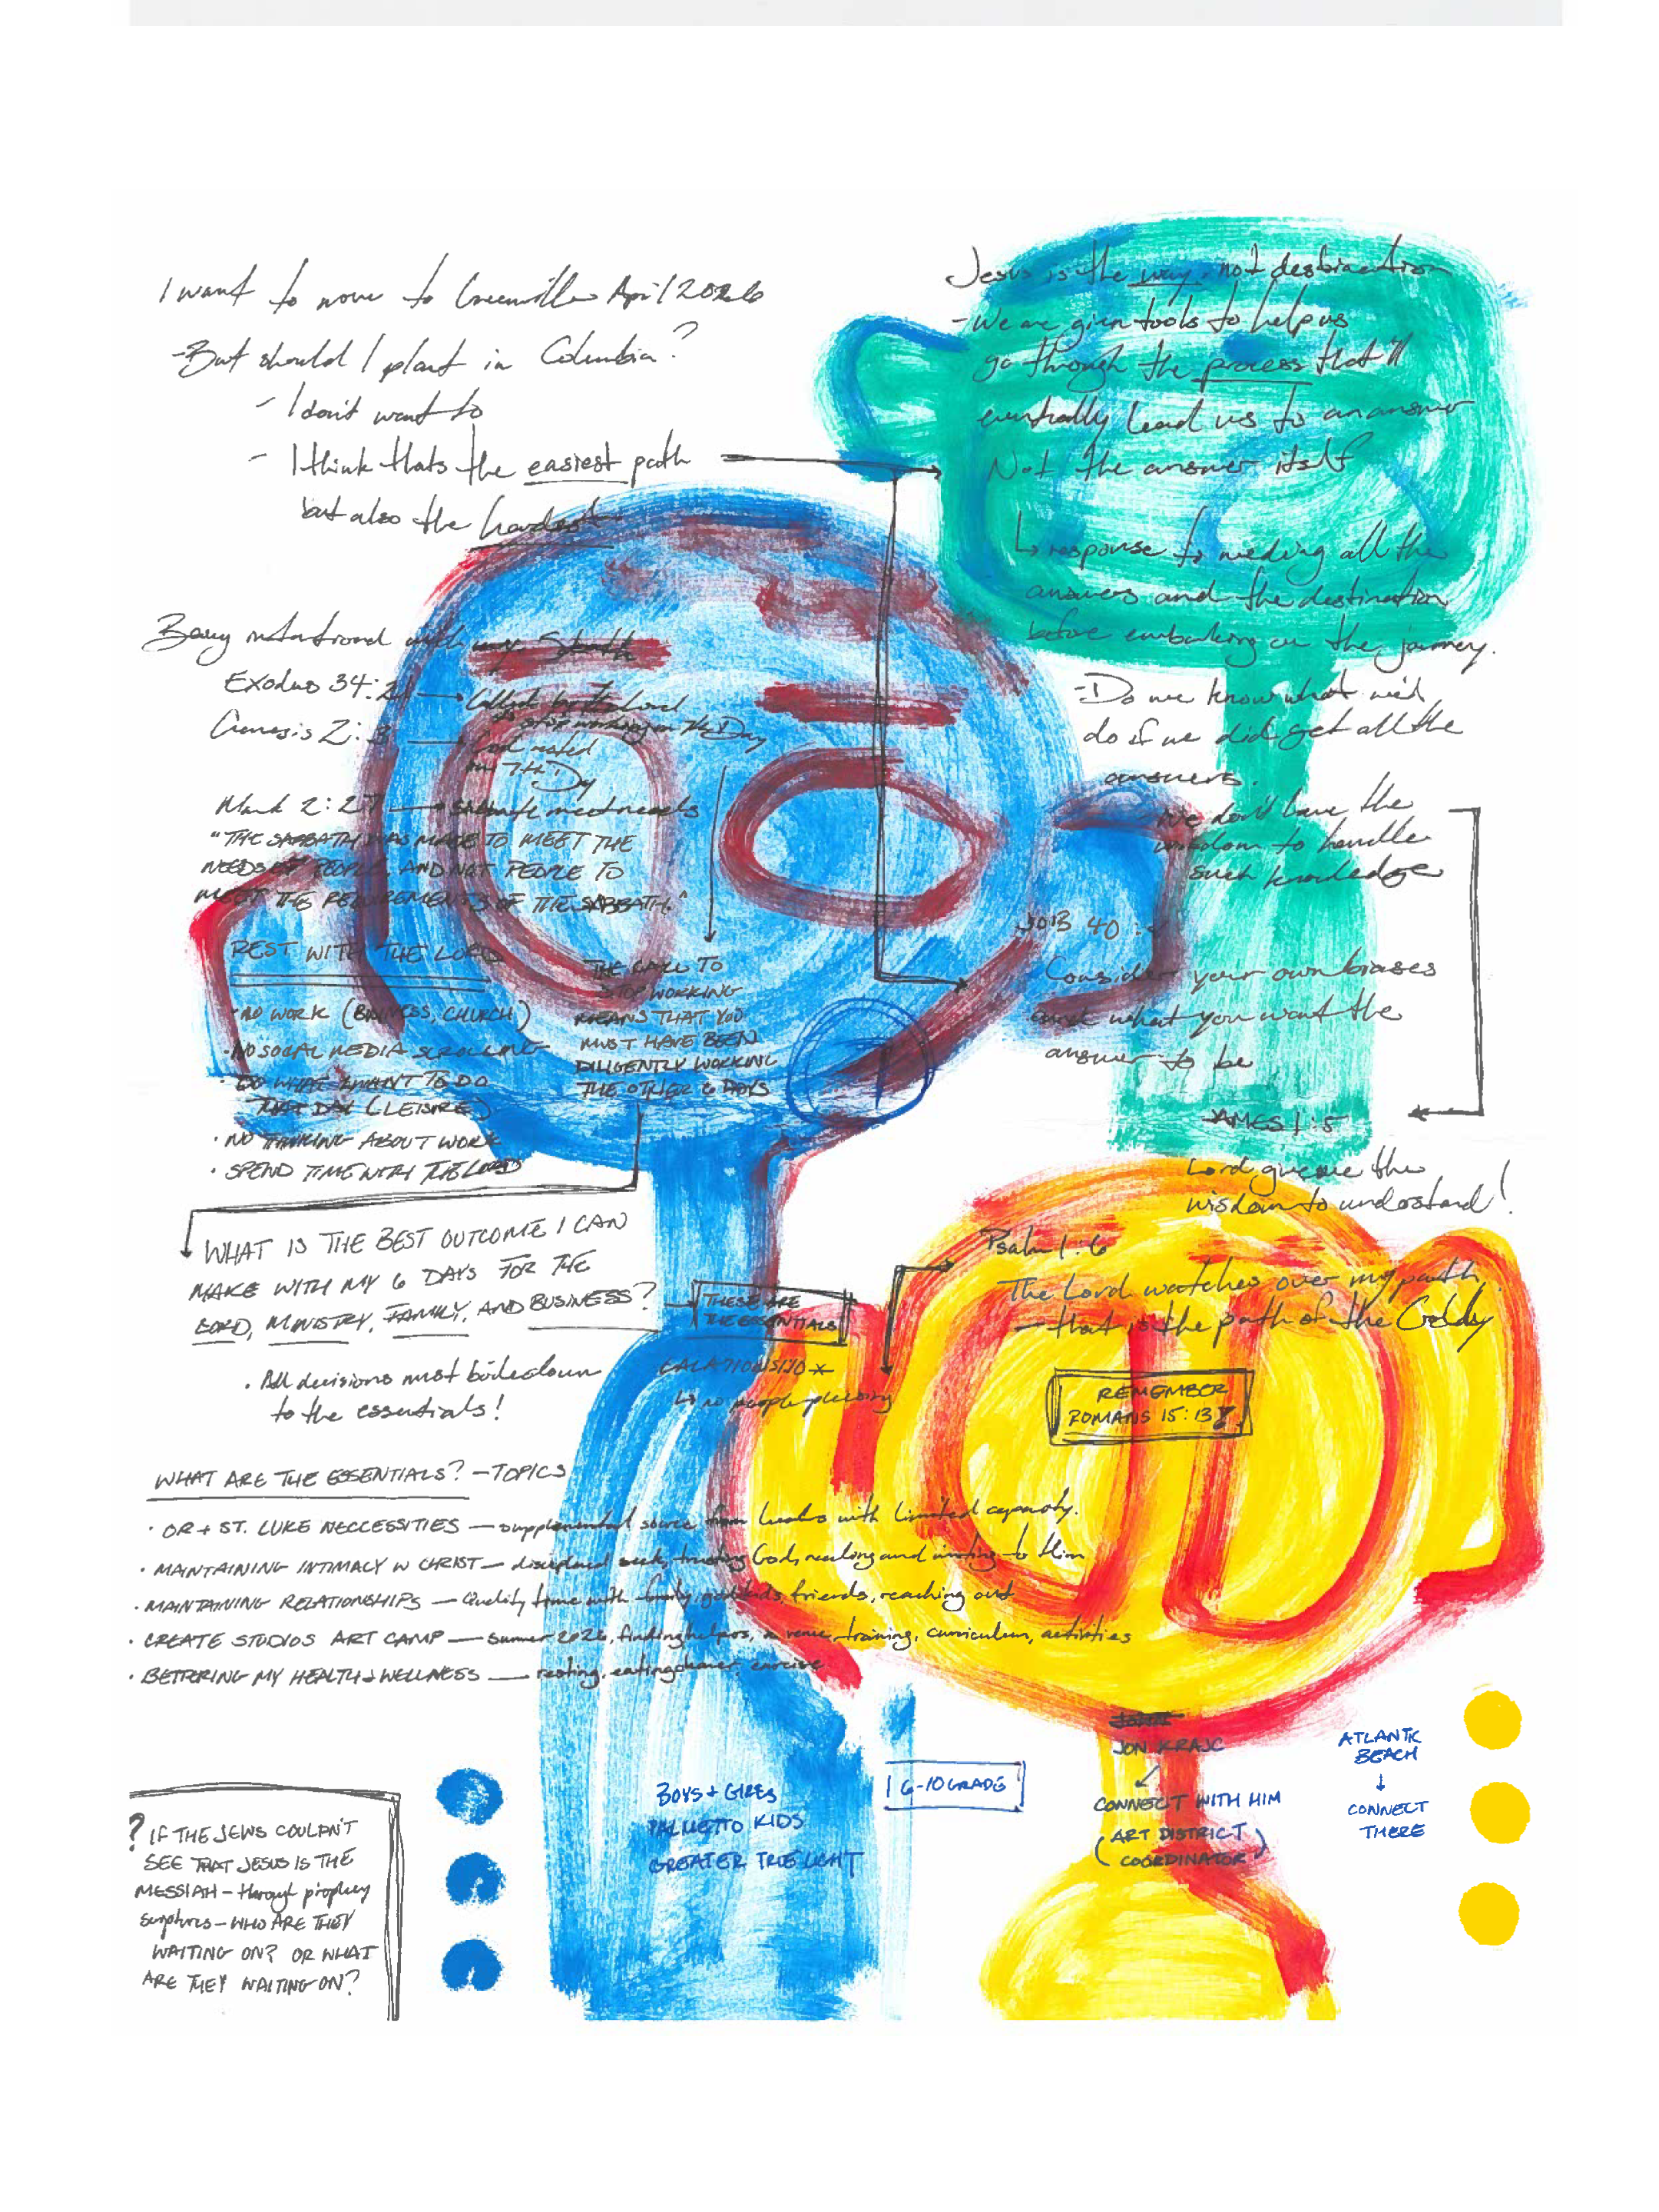 I want to move to Greenville April 2026
- But should I plant in Columbia?
- I don't want to
- I think thats the easiest path
but also the hardest
Being intentional with my
Exodus 34:21 → Called by the Lord
to stop working on 7th Day
Genesis 2:3 → God rested
on 7th Day
Mark 2:27 → needs
"THE SABBATH WAS MADE TO MEET THE
NEEDS OF PEOPLE, AND NOT PEOPLE TO
MEET THE REQUIREMENTS OF THE SABBATH."
REST WITH THE LORD
• NO WORK (BUSINESS, CHURCH)
• NO SOCIAL MEDIA SCROLLING
• DO WHAT I WANT TO DO
THAT DAY (LEISURE)
• NO THINKING ABOUT WORK
• SPEND TIME WITH THE LORD
THE CALL TO
STOP WORKING
MEANS THAT YOU
MUST HAVE BEEN
DILIGENTLY WORKING
THE OTHER 6 DAYS
WHAT IS THE BEST OUTCOME I CAN
MAKE WITH MY 6 DAYS FOR THE
LORD, MINISTRY, FAMILY, AND BUSINESS?
THESE ARE
THE ESSENTIALS
• All decisions must boile down
to the essentials!
GALATIONS 1:10 *
↳ no people pleasing
WHAT ARE THE ESSENTIALS? - TOPICS
• OR + ST. LUKE NECCESSITIES — supplemental source from with limited capacity.
• MAINTAINING INTIMACY W CHRIST — disciplined seek, trusting God, and to Him
• MAINTAINING RELATIONSHIPS — Quality time with family, godkids, friends, reaching out
• CREATE STUDIOS ART CAMP — summer 2026, finding helpers, a venue, training, curriculum, activities
• BETTERING MY HEALTH & WELLNESS — resting, eating cleaner, exercise
? IF THE JEWS COULDN'T
SEE THAT JESUS IS THE
MESSIAH - through prophecy
scriptures - WHO ARE THEY
WAITING ON? OR WHAT
ARE THEY WAITING ON?
BOYS + GIRLS
PALMETTO KIDS
GREATER TRUE LIGHT
6-10 GRADE
Jesus is the way - not destination
- We are given tools to help us
go through the process that'll
eventually lead us to an answer
Not the answer itself
↳ response to needing all the
answers and the destination
before embarking on the journey.
- Do we know what we'd
do if we did get all the
answers.
We don't have the
wisdom to handle
such knowledge
JOB 40:
Consider your own biases
and what you want the
answer to be
JAMES 1:5
Lord give me the
wisdom to understand!
Psalm 1:6
The Lord watches over my path,
— that is the path of the Godly
REMEMBER
ROMANS 15:13!
JON KRAJC
CONNECT WITH HIM
(ART DISTRICT
COORDINATOR)
ATLANTIC
BEACH
↓
CONNECT
THERE